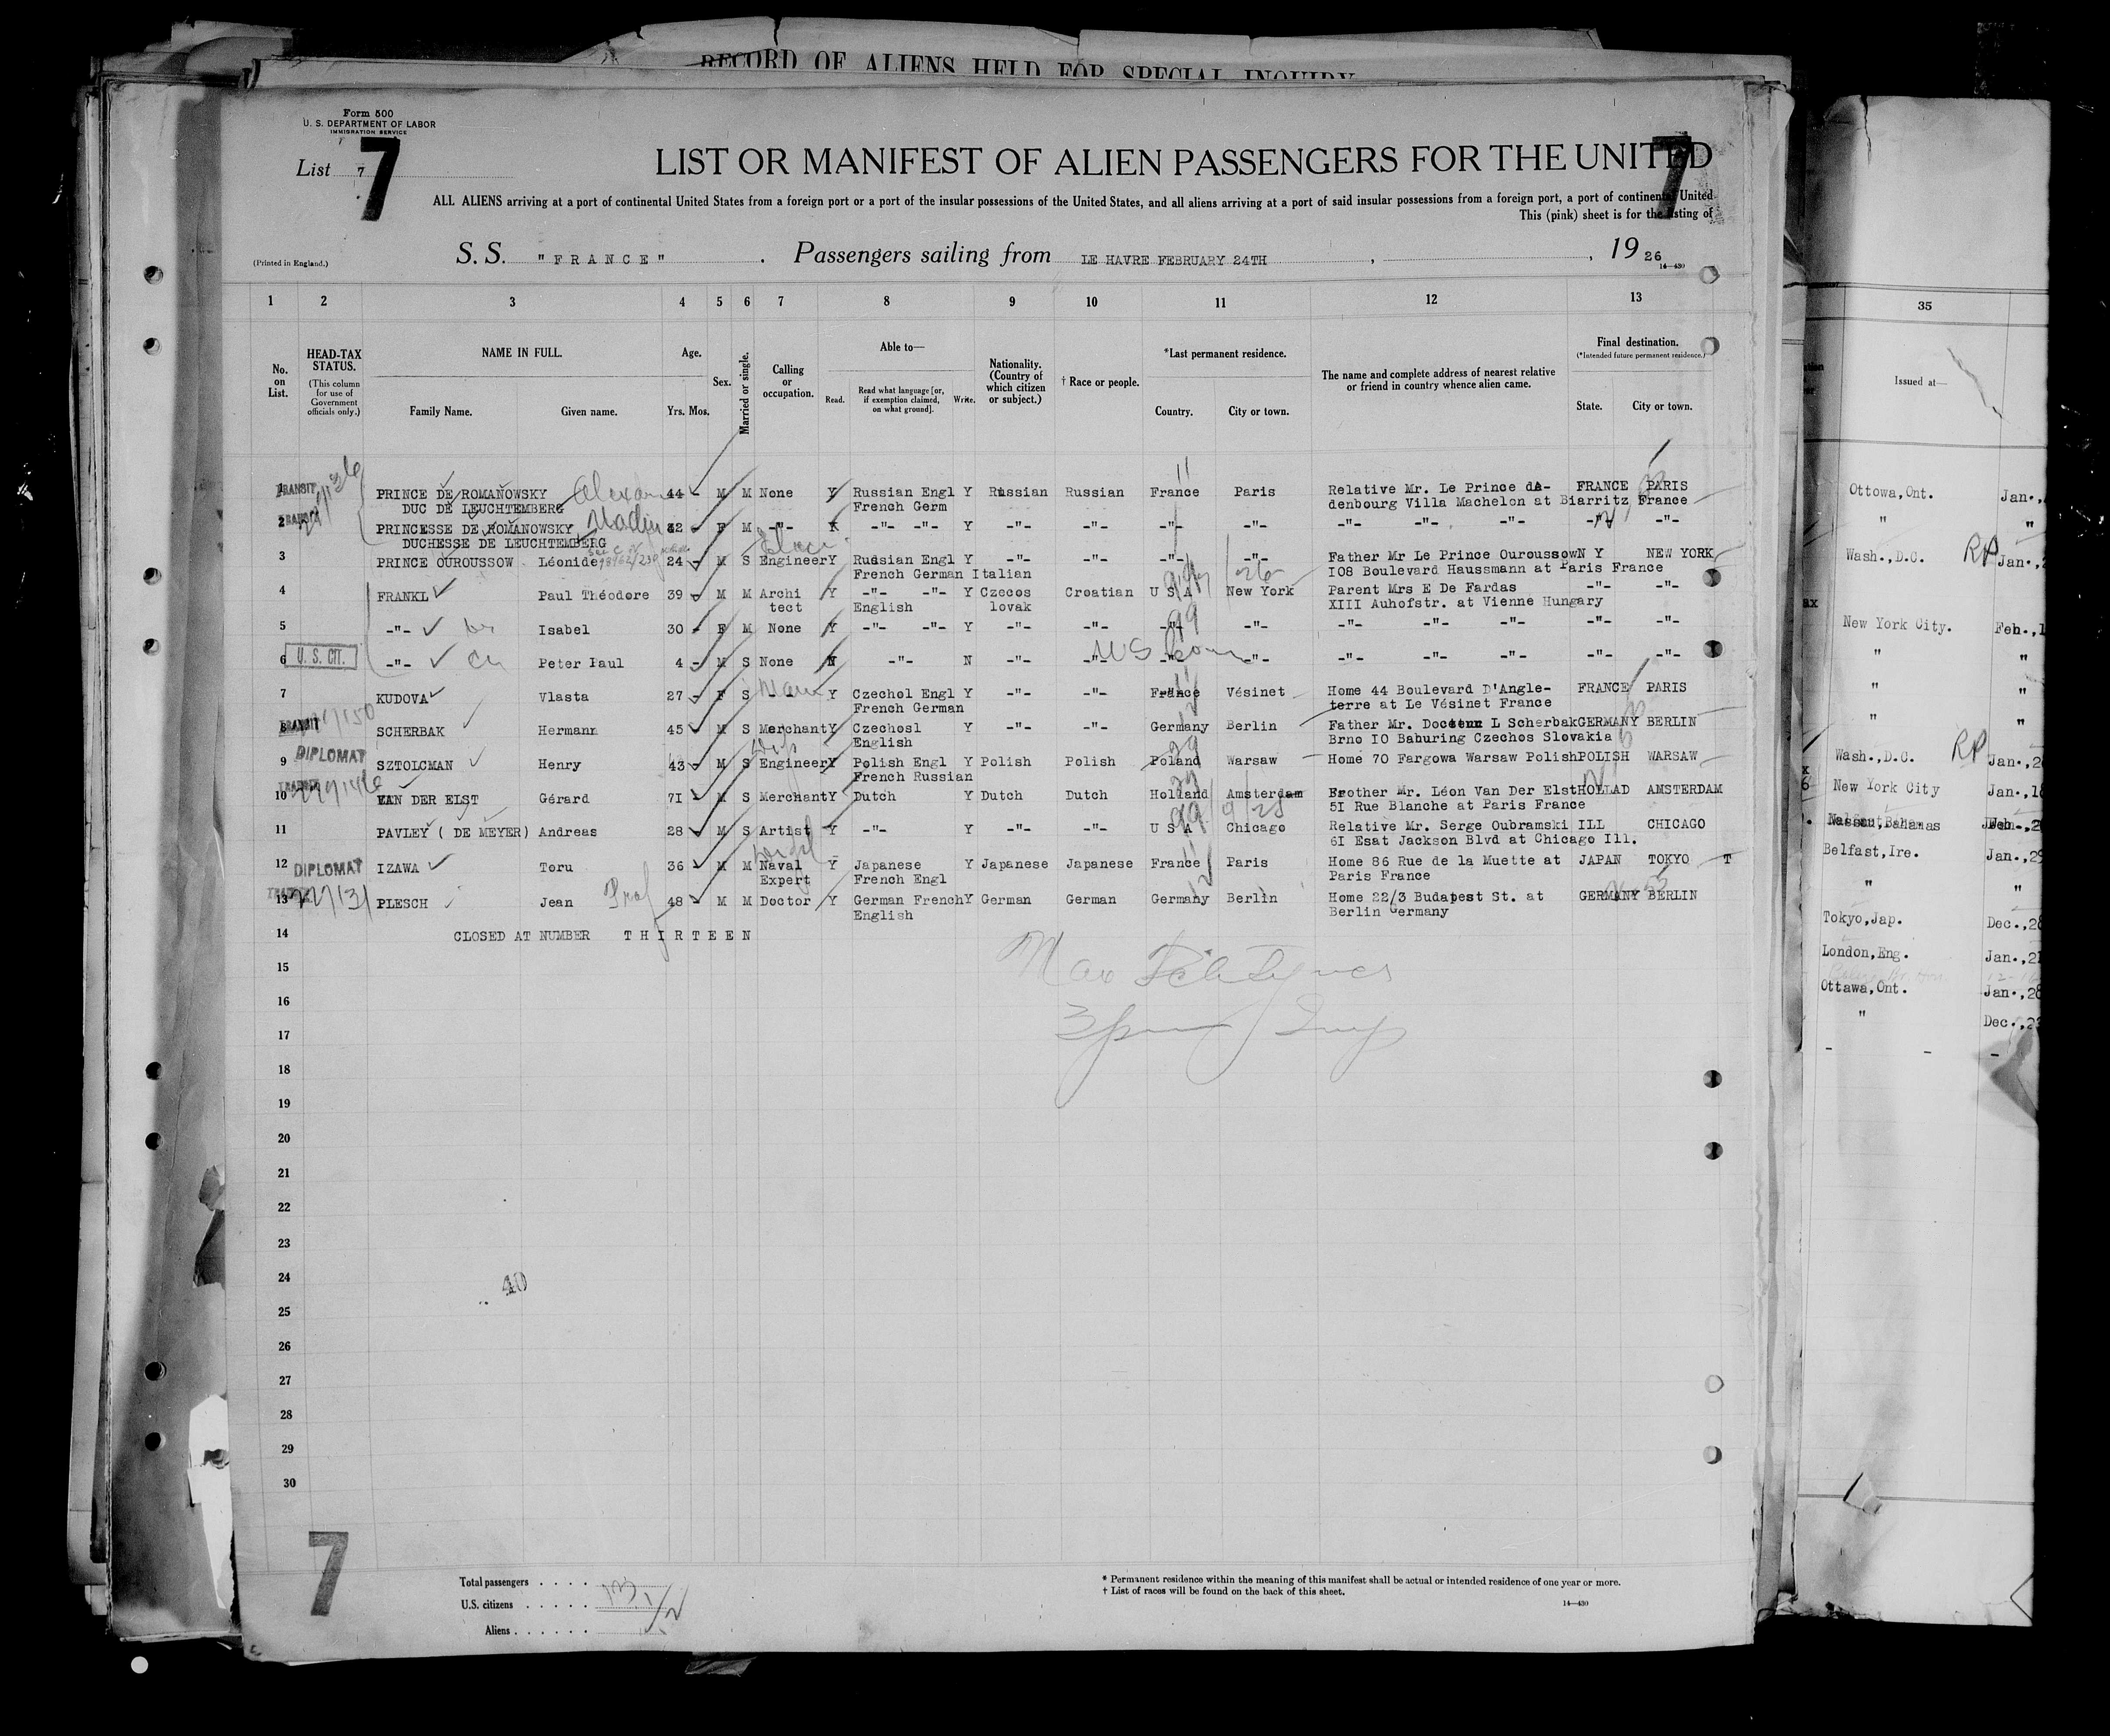 RECORD OF ALIENS HELD FOR SPECIAL INQUIRY
Form 500
U. S. DEPARTMENT OF LABOR
IMMIGRATION SERVICE
List 7
7
7
LIST OR MANIFEST OF ALIEN PASSENGERS FOR THE UNITED
ALL ALIENS arriving at a port of continental United States from a foreign port or a port of the insular possessions of the United States, and all aliens arriving at a port of said insular possessions from a foreign port, a port of continental United
This (pink) sheet is for the listing of
(Printed in England.)
S. S. "FRANCE". Passengers sailing from LE HAVRE FEBRUARY 24TH, , 19 26
14—430
1 2 3 4 5 6 7 8 9 10 11 12 13
No. on List.
HEAD-TAX STATUS.
(This column for use of Government officials only.)
NAME IN FULL.
Family Name. Given name.
Age.
Yrs. Mos.
Sex.
Married or single.
Calling or occupation.
Able to—
Read. Read what language [or, if exemption claimed, on what ground]. Write.
Nationality. (Country of which citizen or subject.)
† Race or people.
*Last permanent residence.
Country. City or town.
The name and complete address of nearest relative or friend in country whence alien came.
Final destination.
(*Intended future permanent residence.)
State. City or town.
1 TRANSIT PRINCE DE ROMANOWSKY 44 M M None Y Russian Engl Y Russian Russian France Paris Relative Mr. Le Prince FRANCE PARIS
DUC DE LEUCHTEMBERG French Germ denbourg Villa Machelon at Biarritz France
2 TRANSIT PRINCESSE DE ROMANOWSKY F M -"- -"- -"- Y -"- -"- -"- -"- -"- -"- -"- -"- -"-
DUCHESSE DE LEUCHTEMBERG
3 PRINCE OUROUSSOW Léonide 24 M S Engineer Y Russian Engl Y -"- -"- -"- -"- Father Mr Le Prince Ouroussow N Y NEW YORK
French German Italian I08 Boulevard Haussmann at Paris France
4 FRANKL Paul Théodore 39 M M Archi Y -"- -"- Y Czecos Croatian U S A New York Parent Mrs E De Fardas -"- -"-
tect English lovak XIII Auhofstr. at Vienne Hungary
5 -"- Isabel 30 F M None Y -"- -"- Y -"- -"- -"- -"- -"- -"- -"- -"- -"-
6 U. S. CIT. -"- Peter Paul 4 M S None N -"- N -"- -"- -"- -"- -"- -"- -"- -"- -"-
US born
7 KUDOVA Vlasta 27 F S - - Y Czechol Engl Y -"- -"- France Vésinet Home 44 Boulevard D'Angle- FRANCE PARIS
French German terre at Le Vésinet France
8 TRANSIT SCHERBAK Hermann 45 M S Merchant Y Czechosl Y -"- -"- Germany Berlin Father Mr. L Scherbak GERMANY BERLIN
English Brno IO Bahuring Czechos Slovakia
9 DIPLOMAT SZTOLCMAN Henry 43 M S Engineer Y Polish Engl Y Polish Polish Poland Warsaw Home 70 Fargowa Warsaw Polish POLISH WARSAW
French Russian
10 VAN DER ELST Gérard 7I M S Merchant Y Dutch Y Dutch Dutch Holland Amsterdam Brother Mr. Léon Van Der Elst HOLLAD AMSTERDAM
5I Rue Blanche at Paris France
11 PAVLEY ( DE MEYER) Andreas 28 M S Artist Y -"- Y -"- -"- U S A Chicago Relative Mr. Serge Oubramski ILL CHICAGO
6I Esat Jackson Blvd at Chicago Ill.
12 DIPLOMAT IZAWA Toru 36 M M Naval Y Japanese Y Japanese Japanese France Paris Home 86 Rue de la Muette at JAPAN TOKYO T
Expert French Engl Paris France
13 PLESCH Jean Prof 48 M M Doctor Y German French Y German German Germany Berlin Home 22/3 Budapest St. at GERMANY BERLIN
English Berlin Germany
14 CLOSED AT NUMBER THIRTEEN
15
16
17
18
19
20
21
22
23
24
25
26
27
28
29
30
40
7
Total passengers . . . . 13
U.S. citizens . . . . . 1
Aliens . . . . . .
* Permanent residence within the meaning of this manifest shall be actual or intended residence of one year or more.
† List of races will be found on the back of this sheet.
14—430
35
Issued at—
Ottowa,Ont. Jan.,
" "
Wash.,D.C. RP Jan.,2
New York City. Feb.,1
" "
" "
" "
Wash.,D.C. RP Jan.,2
New York City Jan.,18
Nassau,Bahamas
Belfast,Ire. Jan.,29
" "
Tokyo,Jap. Dec.,28
London,Eng. Jan.,21
Ottawa,Ont. Jan.,28
" Dec.,23
- - -